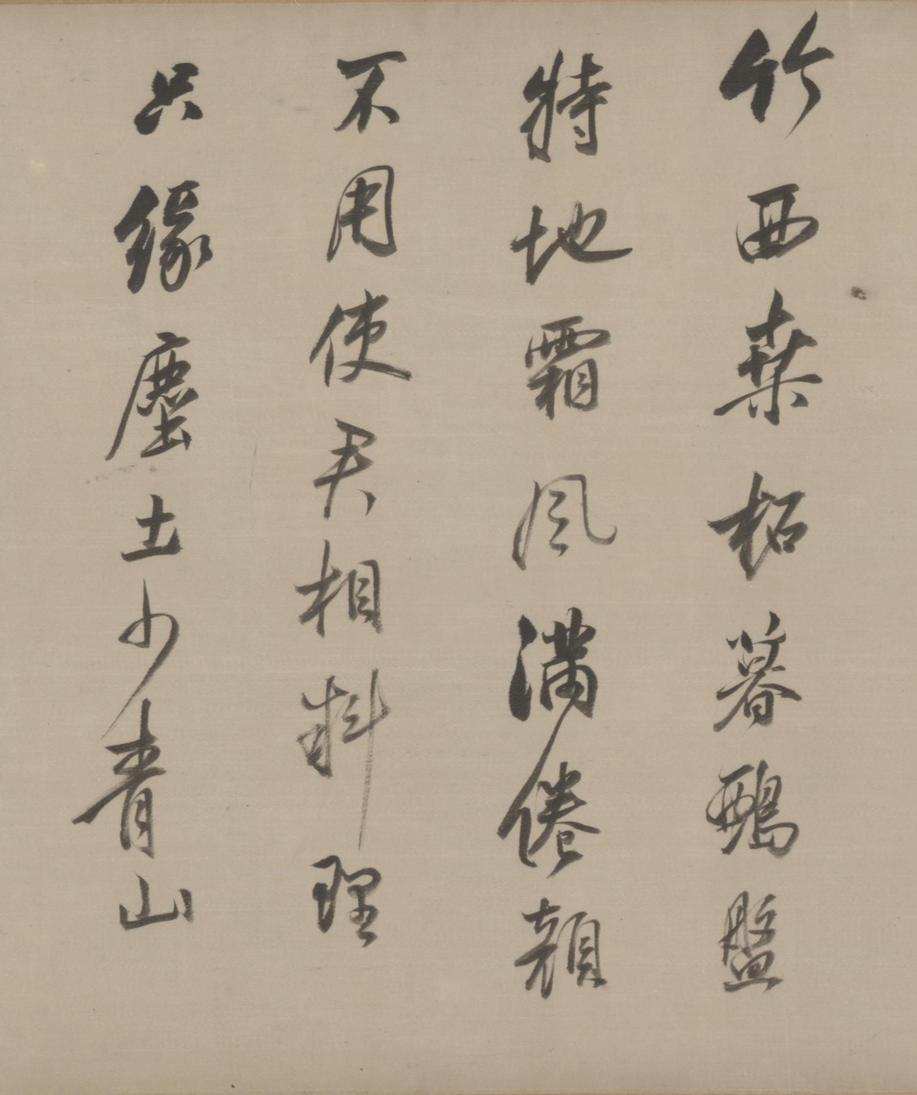 竹西桑柘暮鵶盤
特地霜風滿倦顏
不用使君相料理
只緣塵土少青山